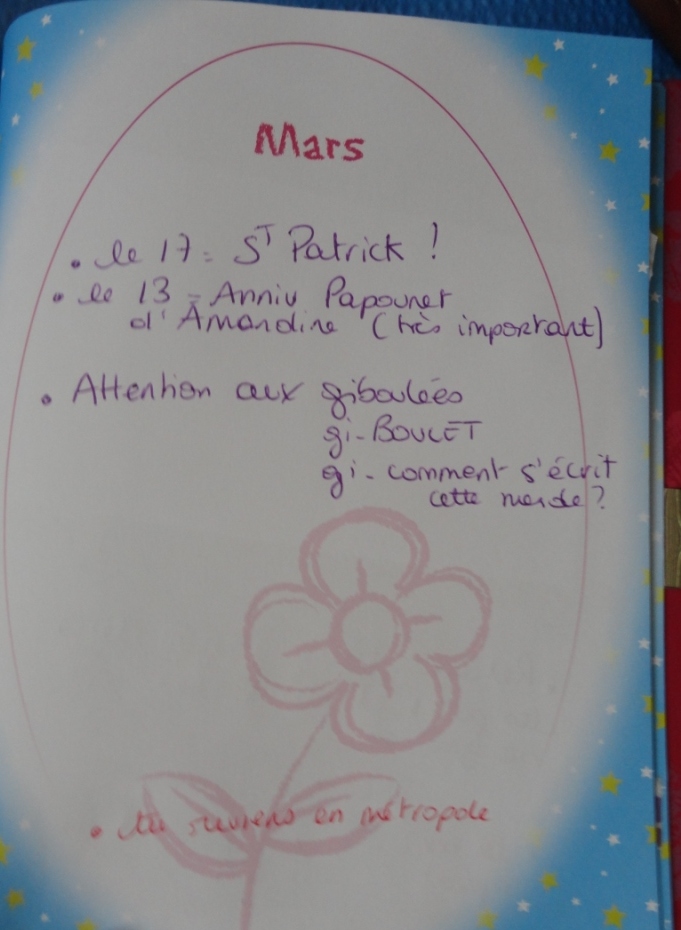 Mars
• le 17 = ST Patrick !
• le 13 = Anniv Papounet
d'Amandine (très important)
• Attention aux giboulées
gi-BOULET
gi-comment s'écrit
cette merde ?
• tu reviens en métropole